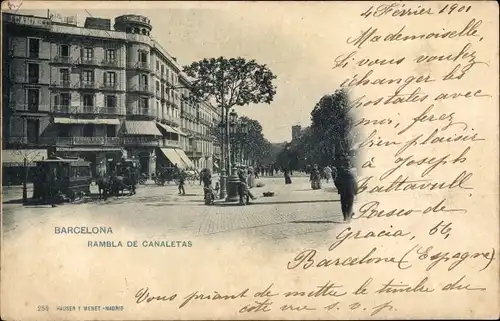 4 Février 1901
Mademoiselle,
Si vous voulez
échanger les
postales avec
moi, ferez
bien plaisir
à Joseph
Fattavull.
Paseo de
Gracia, 64,
Barcelone (Espagne)
Vous priant de mettre le timbre du
coté vue s. v. p.
BARCELONA
RAMBLA DE CANALETAS
HAUSER Y MENET.-MADRID